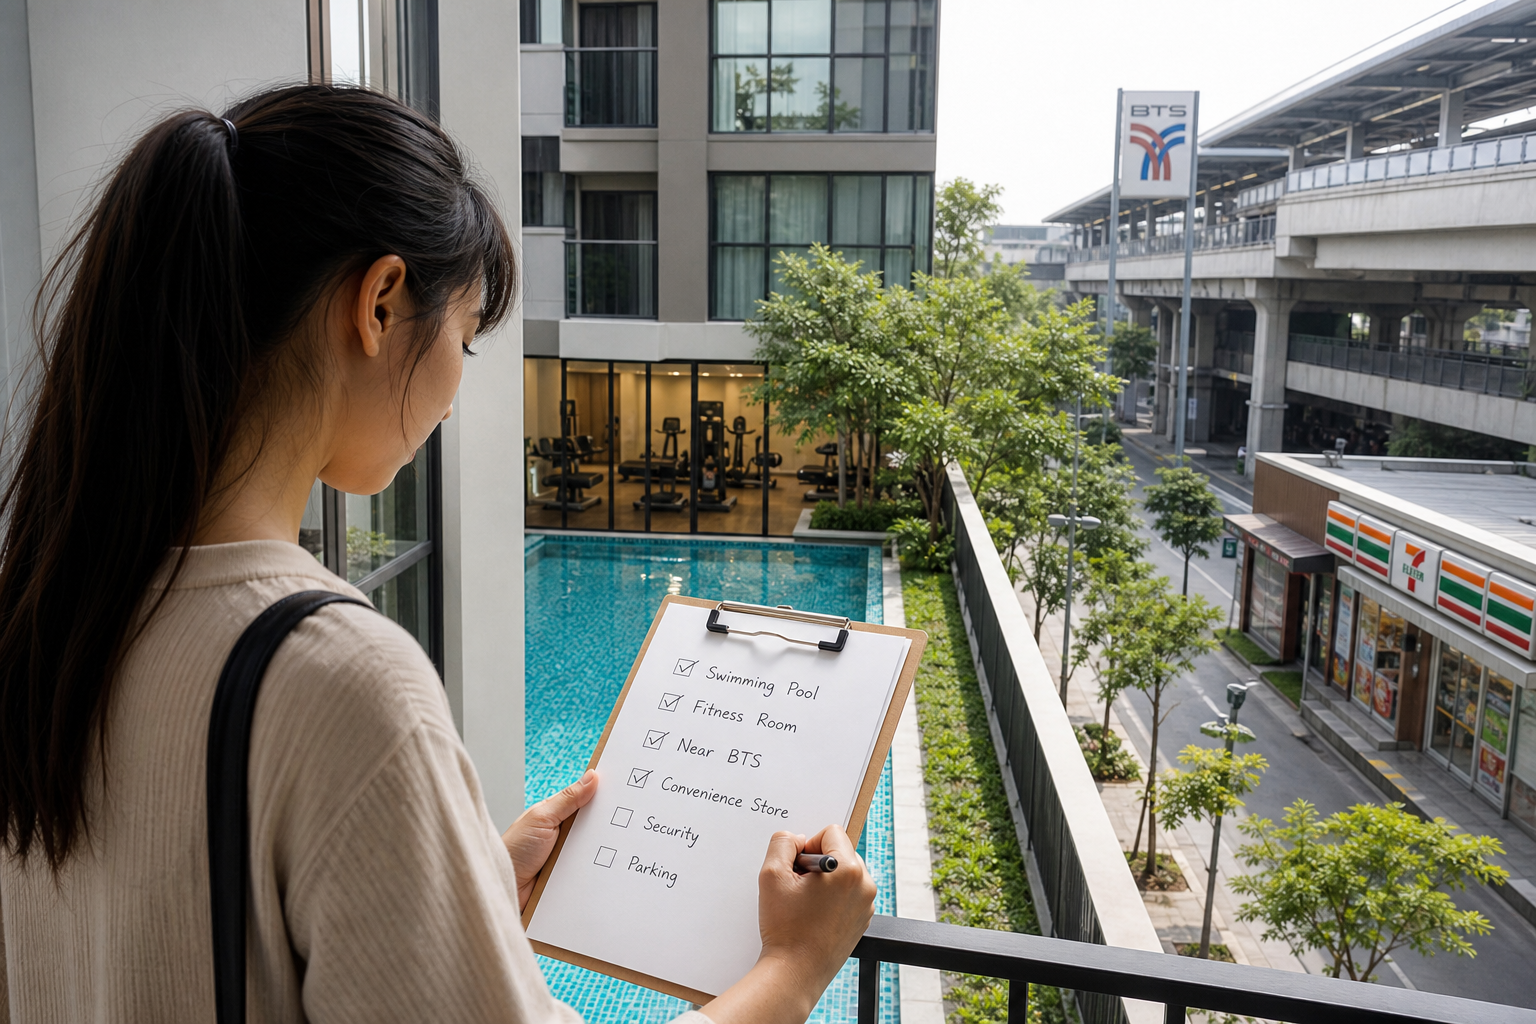 BTS
Swimming Pool
Fitness Room
Near BTS
Convenience Store
Security
Parking